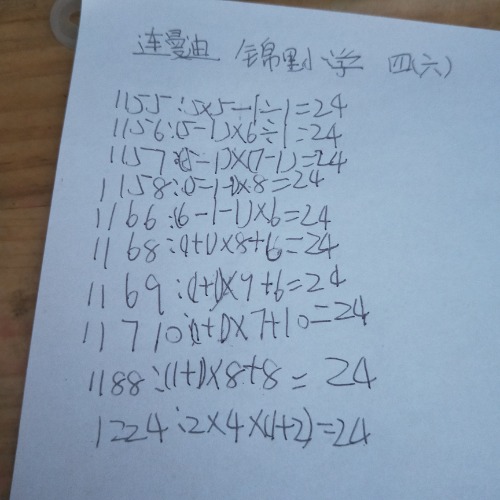 连曼迪 锦里小学 四(六)
1155:5×5-1÷1=24
1156:(5-1)×6÷1=24
1157:(5-1)×(7-1)=24
1158:(5-1-1)×8=24
1166:(6-1-1)×6=24
1168:(1+1)×8+6=24
1169:(1+1)×9+6=24
11710:(1+1)×7+10=24
1188:(1+1)×8+8=24
1224:2×4×(1+2)=24